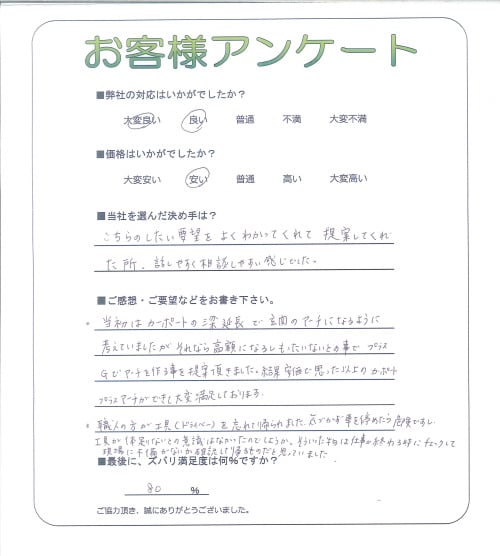 お客様アンケート
■弊社の対応はいかがでしたか？
大変良い 良い 普通 不満 大変不満
■価格はいかがでしたか？
大変安い 安い 普通 高い 大変高い
■当社を選んだ決め手は？
こちらのしたい要望をよくわかってくれて 提案してくれ
た所、話しやすく相談しやすい感じでした。
■ご感想・ご要望などをお書き下さい。
当初はカーポートの梁延長で玄関のアーチになるように
考えていましたが それなら高額になるしもったいないとの事で プラス
Gでアーチを作る事を提案頂きました。結果安価で思った以上のカーポート
プラスアーチができて大変満足しております。
職人の方が工具(ドライバー)を忘れて帰られました。気づかず車を停めたら危険ですし、
工具が1本足りないとの意識はなかったのでしょうか。そういた物は仕事が終わる時にチェックして
現場に不備がないか確認して帰るものだと思っていました。
■最後に、ズバリ満足度は何％ですか？
80 ％
ご協力頂き、誠にありがとうございました。